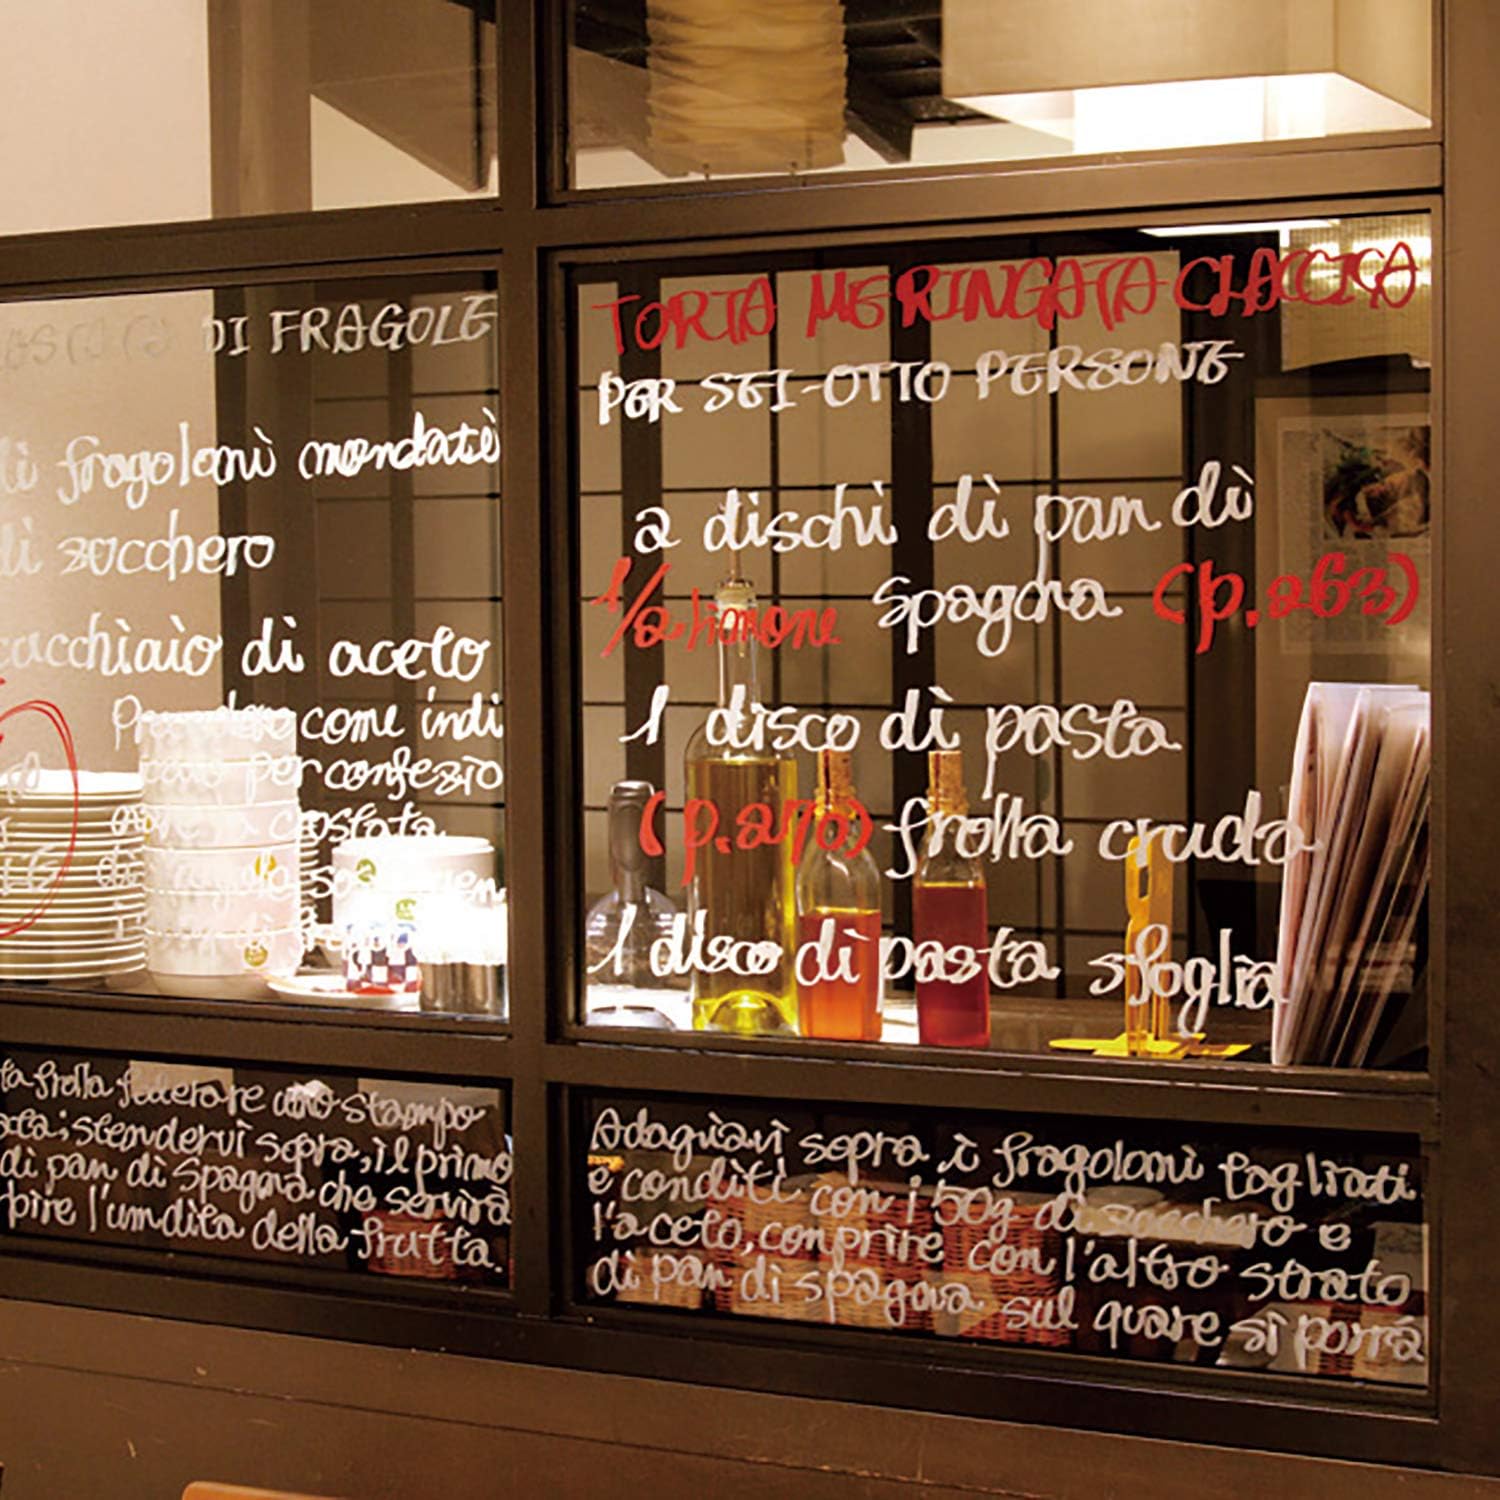 DI FRAGOLE
di fragoloni mondati
di zucchero
cucchiaio di aceto
come indi
per confezio
crostata
ta frolla foderare uno stampo
stendervi sopra, il primo
di pan di Spagna che servirà
l'umdita della frutta.
TORTA MERINGATA CLACCICA
PER SEI-OTTO PERSONE
2 dischi di pan di
1/2 limone spagna (p.263)
1 disco di pasta
(p.270) frolla cruda
1 disco di pasta sfoglia
Adagiavi sopra i fragoloni tagliati
e conditi con i 50g di zucchero e
l'aceto, conprire con l'altro strato
di pan di spagna sul quare si porrà